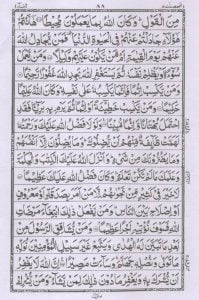 ٨٨
مِنَ الْقَوْلِ ؕ وَكَانَ اللّٰهُ بِمَا يَعْمَلُوْنَ مُحِيْطًا ۝ هٰۤاَنْتُمْ
هٰۤؤُلَآءِ جٰدَلْتُمْ عَنْهُمْ فِى الْحَيٰوةِ الدُّنْيَا ۫ فَمَنْ يُّجَادِلُ اللّٰهَ
عَنْهُمْ يَوْمَ الْقِيٰمَةِ اَمْ مَّنْ يَّكُوْنُ عَلَيْهِمْ وَكِيْلًا ۝ وَمَنْ يَّعْمَلْ
سُوْٓءًا اَوْ يَظْلِمْ نَفْسَهٗ ثُمَّ يَسْتَغْفِرِ اللّٰهَ يَجِدِ اللّٰهَ غَفُوْرًا رَّحِيْمًا ۝
وَمَنْ يَّكْسِبْ اِثْمًا فَاِنَّمَا يَكْسِبُهٗ عَلٰى نَفْسِهٖ ؕ وَكَانَ اللّٰهُ عَلِيْمًا
حَكِيْمًا ۝ وَمَنْ يَّكْسِبْ خَطِيْٓئَةً اَوْ اِثْمًا ثُمَّ يَرْمِ بِهٖ بَرِيْٓئًا فَقَدِ
احْتَمَلَ بُهْتَانًا وَّاِثْمًا مُّبِيْنًا ۝ وَلَوْلَا فَضْلُ اللّٰهِ عَلَيْكَ وَرَحْمَتُهٗ
لَهَمَّتْ طَّآئِفَةٌ مِّنْهُمْ اَنْ يُّضِلُّوْكَ ؕ وَمَا يُضِلُّوْنَ اِلَّاۤ اَنْفُسَهُمْ
وَمَا يَضُرُّوْنَكَ مِنْ شَىْءٍ ؕ وَاَنْزَلَ اللّٰهُ عَلَيْكَ الْكِتٰبَ وَالْحِكْمَةَ
وَعَلَّمَكَ مَا لَمْ تَكُنْ تَعْلَمُ ؕ وَكَانَ فَضْلُ اللّٰهِ عَلَيْكَ عَظِيْمًا ۝
لَا خَيْرَ فِىْ كَثِيْرٍ مِّنْ نَّجْوٰىهُمْ اِلَّا مَنْ اَمَرَ بِصَدَقَةٍ اَوْ مَعْرُوْفٍ
اَوْ اِصْلَاحٍۭ بَيْنَ النَّاسِ ؕ وَمَنْ يَّفْعَلْ ذٰلِكَ ابْتِغَآءَ مَرْضَاتِ
اللّٰهِ فَسَوْفَ نُؤْتِيْهِ اَجْرًا عَظِيْمًا ۝ وَمَنْ يُّشَاقِقِ الرَّسُوْلَ مِنْۢ
بَعْدِ مَا تَبَيَّنَ لَهُ الْهُدٰى وَيَتَّبِعْ غَيْرَ سَبِيْلِ الْمُؤْمِنِيْنَ نُوَلِّهٖ
مَا تَوَلّٰى وَنُصْلِهٖ جَهَنَّمَ ؕ وَسَآءَتْ مَصِيْرًا ۝ اِنَّ اللّٰهَ لَا يَغْفِرُ
اَنْ يُّشْرَكَ بِهٖ وَيَغْفِرُ مَا دُوْنَ ذٰلِكَ لِمَنْ يَّشَآءُ ؕ وَمَنْ يُّشْرِكْ